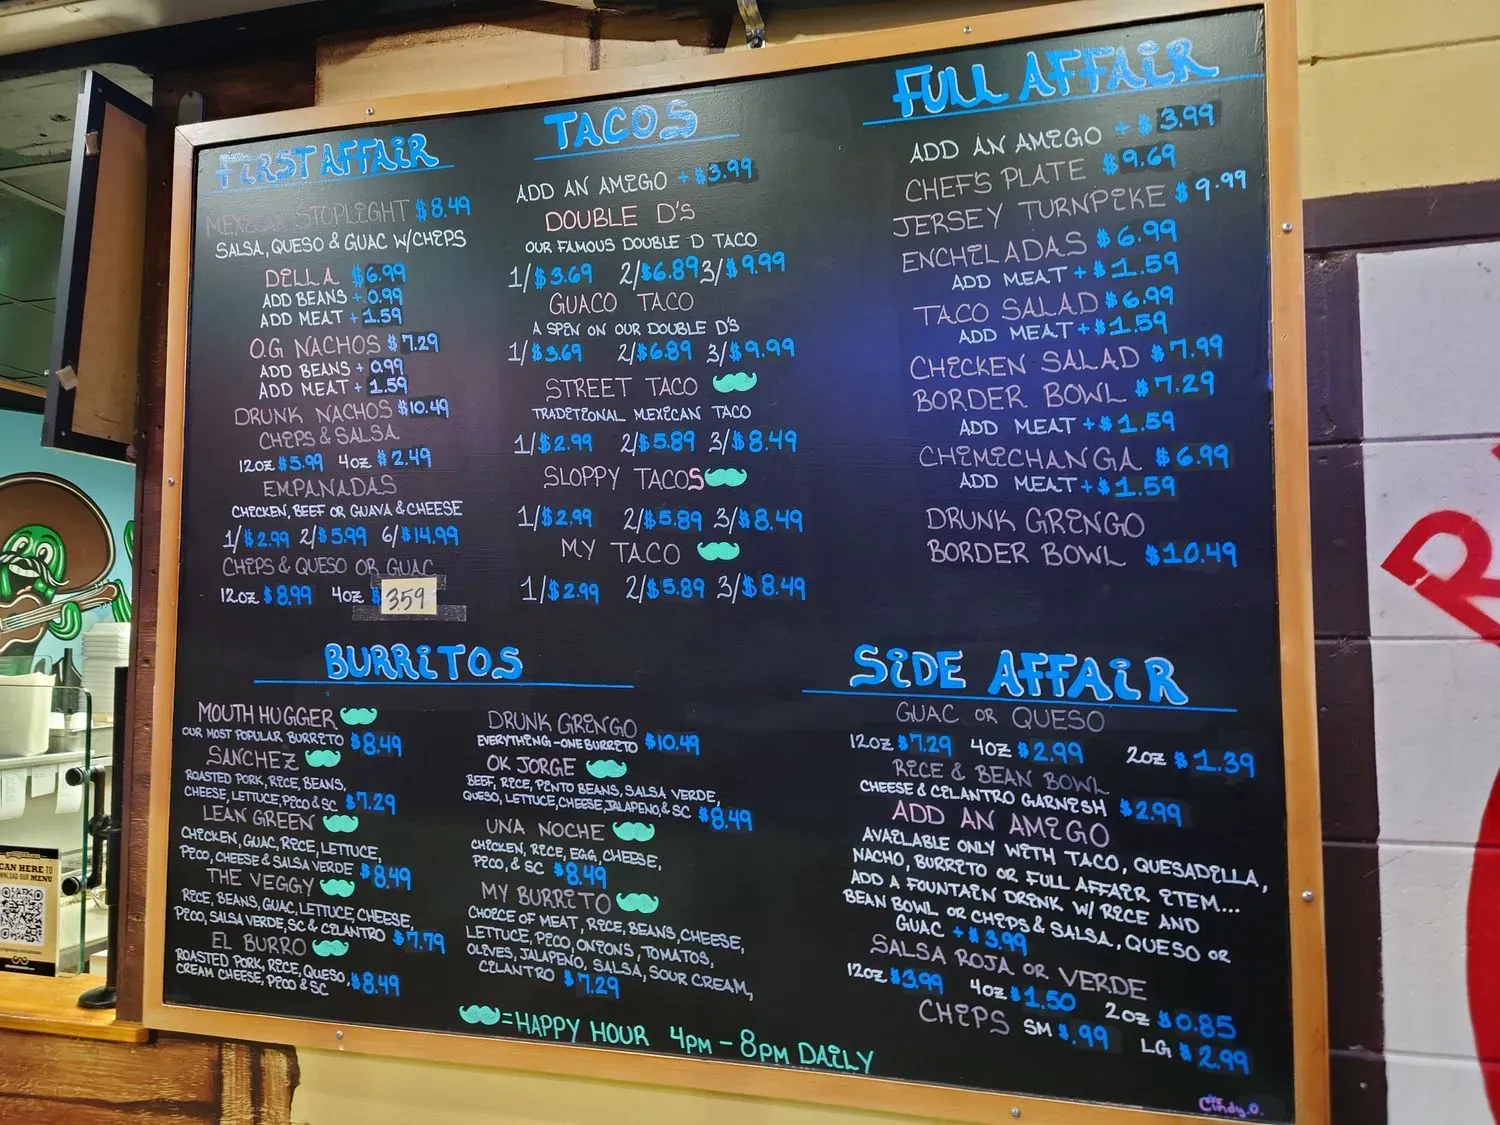 FIRST AFFAIR
MEXICAN STOPLIGHT $8.49
SALSA, QUESO & GUAC W/CHIPS
DILLA $6.99
ADD BEANS + 0.99
ADD MEAT + 1.59
O.G NACHOS $7.29
ADD BEANS + 0.99
ADD MEAT + 1.59
DRUNK NACHOS $10.49
CHIPS & SALSA
12oz $5.99 4oz $2.49
EMPANADAS
CHICKEN, BEEF OR GUAVA & CHEESE
1/$2.99 2/$5.99 6/$14.99
CHIPS & QUESO OR GUAC
12oz $8.99 4oz $3.59
TACOS
ADD AN AMIGO + $3.99
DOUBLE D'S
OUR FAMOUS DOUBLE D TACO
1/$3.69 2/$6.89 3/$9.99
GUACO TACO
A SPIN ON OUR DOUBLE D'S
1/$3.69 2/$6.89 3/$9.99
STREET TACO
TRADITIONAL MEXICAN TACO
1/$2.99 2/$5.89 3/$8.49
SLOPPY TACOS
1/$2.99 2/$5.89 3/$8.49
MY TACO
1/$2.99 2/$5.89 3/$8.49
FULL AFFAIR
ADD AN AMIGO + $3.99
CHEF'S PLATE $9.69
JERSEY TURNPIKE $9.99
ENCHILADAS $6.99
ADD MEAT + $1.59
TACO SALAD $6.99
ADD MEAT + $1.59
CHICKEN SALAD $7.99
BORDER BOWL $7.29
ADD MEAT + $1.59
CHIMICHANGA $6.99
ADD MEAT + $1.59
DRUNK GRINGO
BORDER BOWL $10.49
BURRITOS
MOUTH HUGGER
OUR MOST POPULAR BURRITO $8.49
SANCHEZ
ROASTED PORK, RICE, BEANS,
CHEESE, LETTUCE, PICO & SC $7.29
LEAN GREEN
CHICKEN, GUAC, RICE, LETTUCE,
PICO, CHEESE & SALSA VERDE $8.49
THE VEGGY
RICE, BEANS, GUAC, LETTUCE, CHEESE,
PICO, SALSA VERDE, SC & CILANTRO $7.79
EL BURRO
ROASTED PORK, RICE, QUESO,
CREAM CHEESE, PICO & SC $8.49
DRUNK GRINGO
EVERYTHING-ONE BURRITO $10.49
OK JORGE
BEEF, RICE, PINTO BEANS, SALSA VERDE,
QUESO, LETTUCE, CHEESE, JALAPENO, & SC $8.49
UNA NOCHE
CHICKEN, RICE, EGG, CHEESE,
PICO, & SC $8.49
MY BURRITO
CHOICE OF MEAT, RICE, BEANS, CHEESE,
LETTUCE, PICO, ONIONS, TOMATOS,
OLIVES, JALAPENO, SALSA, SOUR CREAM,
CILANTRO $7.29
=HAPPY HOUR 4PM - 8PM DAILY
SIDE AFFAIR
GUAC OR QUESO
12oz $7.29 4oz $2.99 2oz $1.39
RICE & BEAN BOWL
CHEESE & CILANTRO GARNISH $2.99
ADD AN AMIGO
AVAILABLE ONLY WITH TACO, QUESADILLA,
NACHO, BURRITO OR FULL AFFAIR ITEM...
ADD A FOUNTAIN DRINK W/ RICE AND
BEAN BOWL OR CHIPS & SALSA, QUESO OR
GUAC + $3.99
SALSA ROJA OR VERDE
12oz $3.99 4oz $1.50 2oz $0.85
CHIPS SM $.99 LG $2.99
Cindy.O.
CAN HERE TO
WNLOAD OUR MENU
R